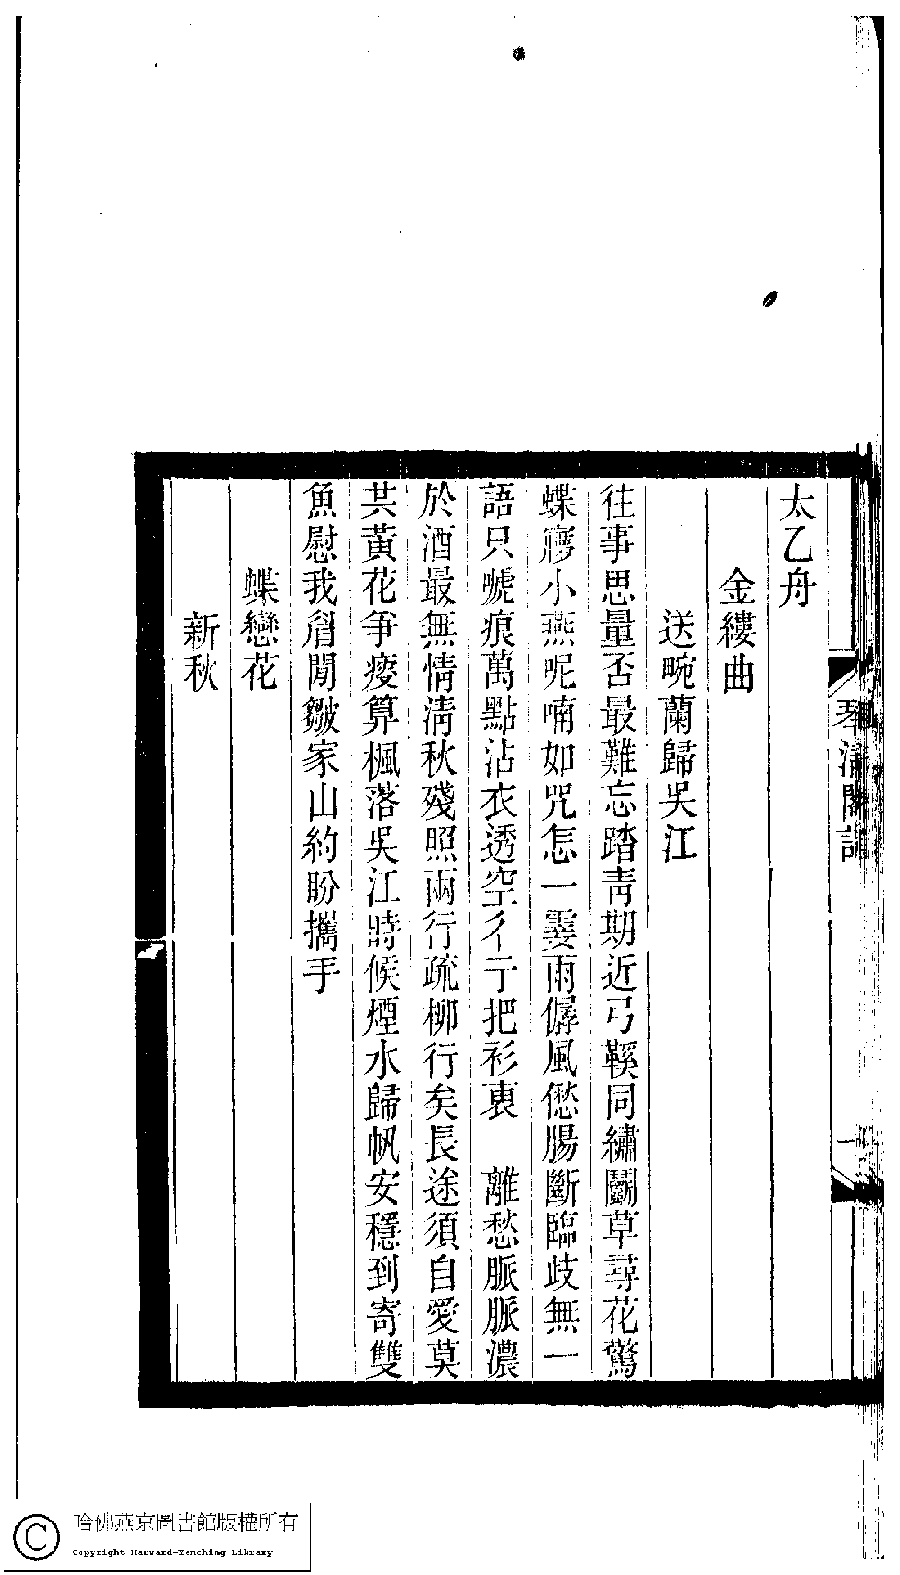 太乙舟
金縷曲
送畹蘭歸吳江
往事思量否最難忘踏青期近弓鞵同繡鬬草尋花驚
蝶㝱小燕呢喃如咒怎一霎雨僝風僽腸斷臨歧無一
語只嗁痕萬點沾衣透空彳亍把衫裏　離愁脈脈濃
於酒最無情清秋殘照兩行疏柳行矣長途須自愛莫
共黃花爭瘦算楓落吳江時候煙水歸帆安穩到寄雙
魚慰我眉閒皺家山約盼攜手
蝶戀花
新秋
琴清閣詞
一
哈佛燕京圖書館版權所有
Copyright Harvard-Yenching Library